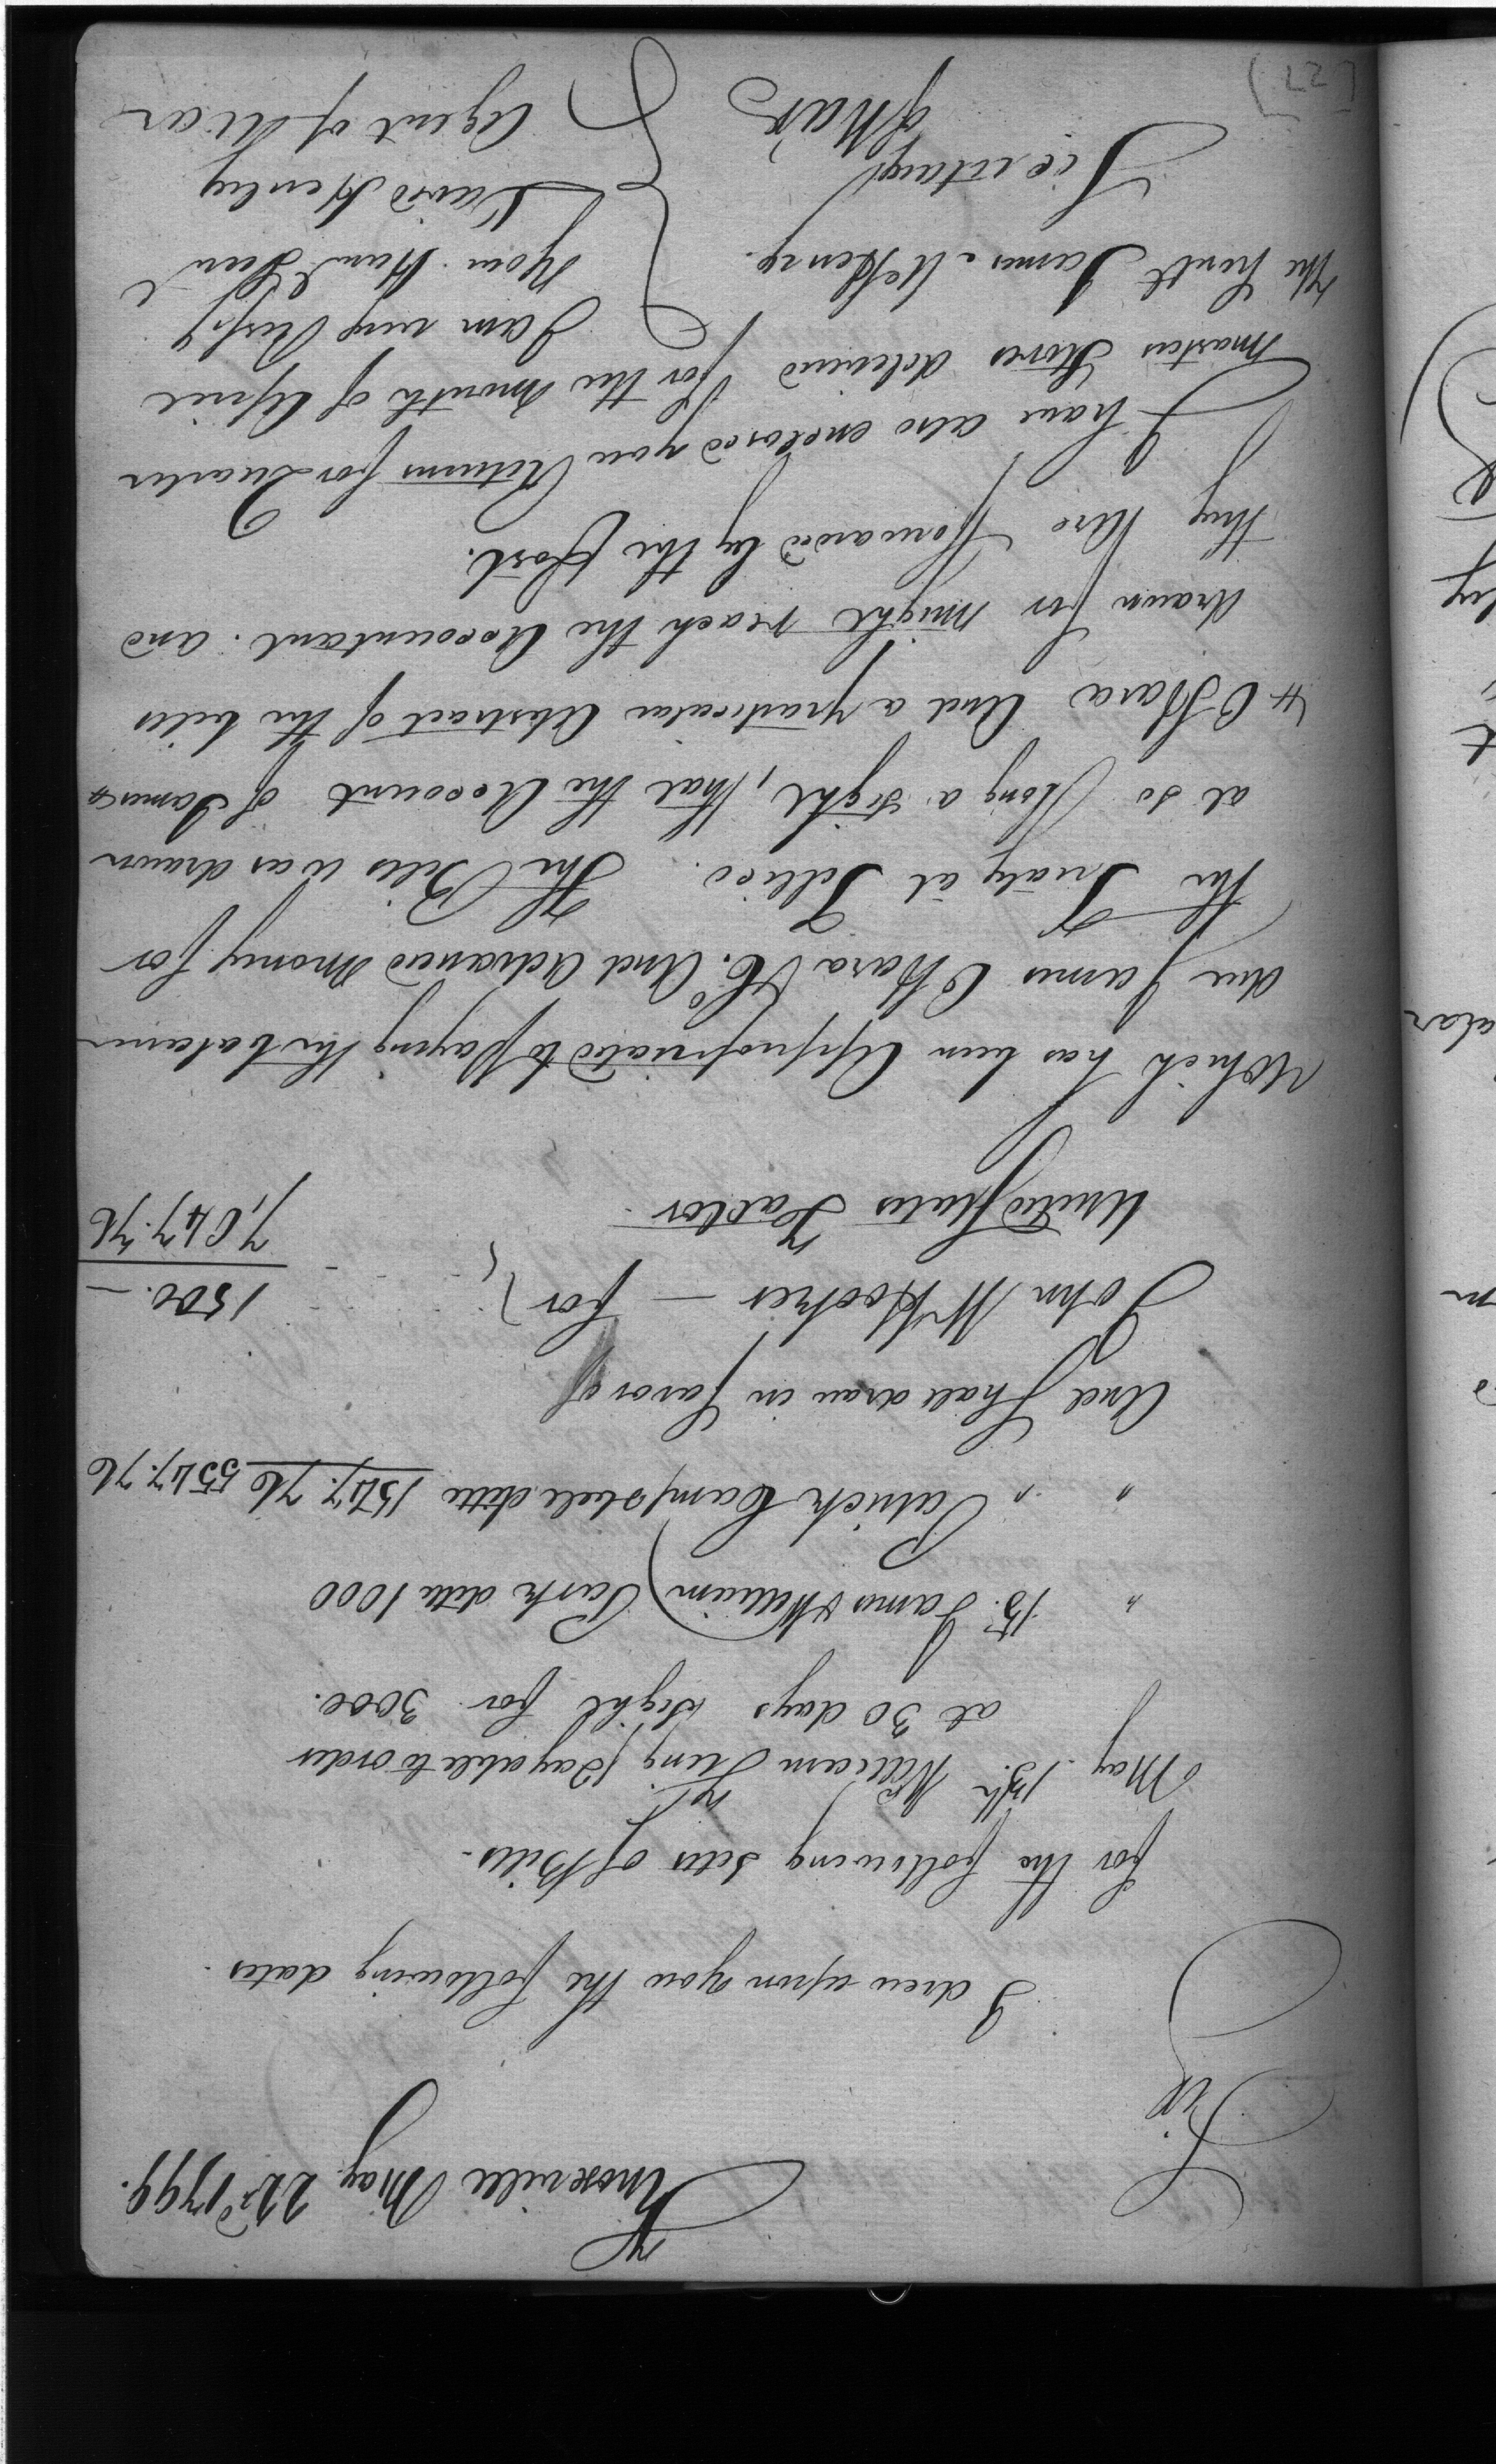 Knoxville May 22d 1799.
Sir
I drew upon you the following dates
for the following setts of Bills.
May 15th William King Payable to order
at 30 days sight for 3000.
" 15. James & William Park ditto 1000
" " Patrick Campbell ditto 1547.76 5547.76
And Shall draw in favor of
John W Hooker — for } 1500. —
United States Factor 7,047.76
Which has been Appropriated to paying the balance
due James OHara & Co. And Advanced Money for
the Treaty at Tellico. The Bills was drawn
at so long a sight, that the Account of James
OHara And a particular Abstract of the bills
drawn for might reach the Accountant. and
they were Forwarded by the Post.
I have also enclosed you Returns for Quarter
Masters Stores delivered for the month of April
I am very Respy
The Honbl James McHenry. Your Hum Serv
Secretary David Henley
of War Agent of War
[22]